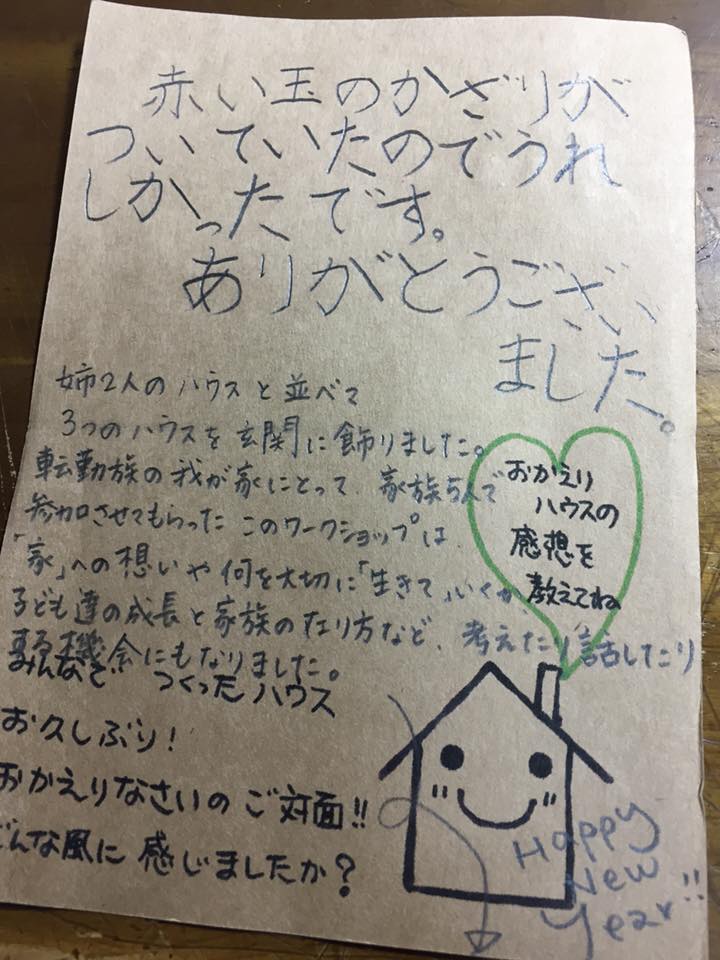 赤い玉のかざりが
ついていたのでうれ
しかったです。
ありがとうござい
ました。
姉2人のハウスと並べて
3つのハウスを玄関に飾りました。
転勤族の我が家にとって、家族5人で
参加させてもらったこのワークショップは、
「家」への想いや何を大切に「生きて」いくか、
子ども達の成長と家族の在り方など、考えたり話したり
機会にもなりました。
おかえり
ハウスの
感想を
教えてね
みんなで つくったハウス
お久しぶり!
おかえりなさいのご対面!!
どんな風に感じましたか?
Happy
New
Year!!